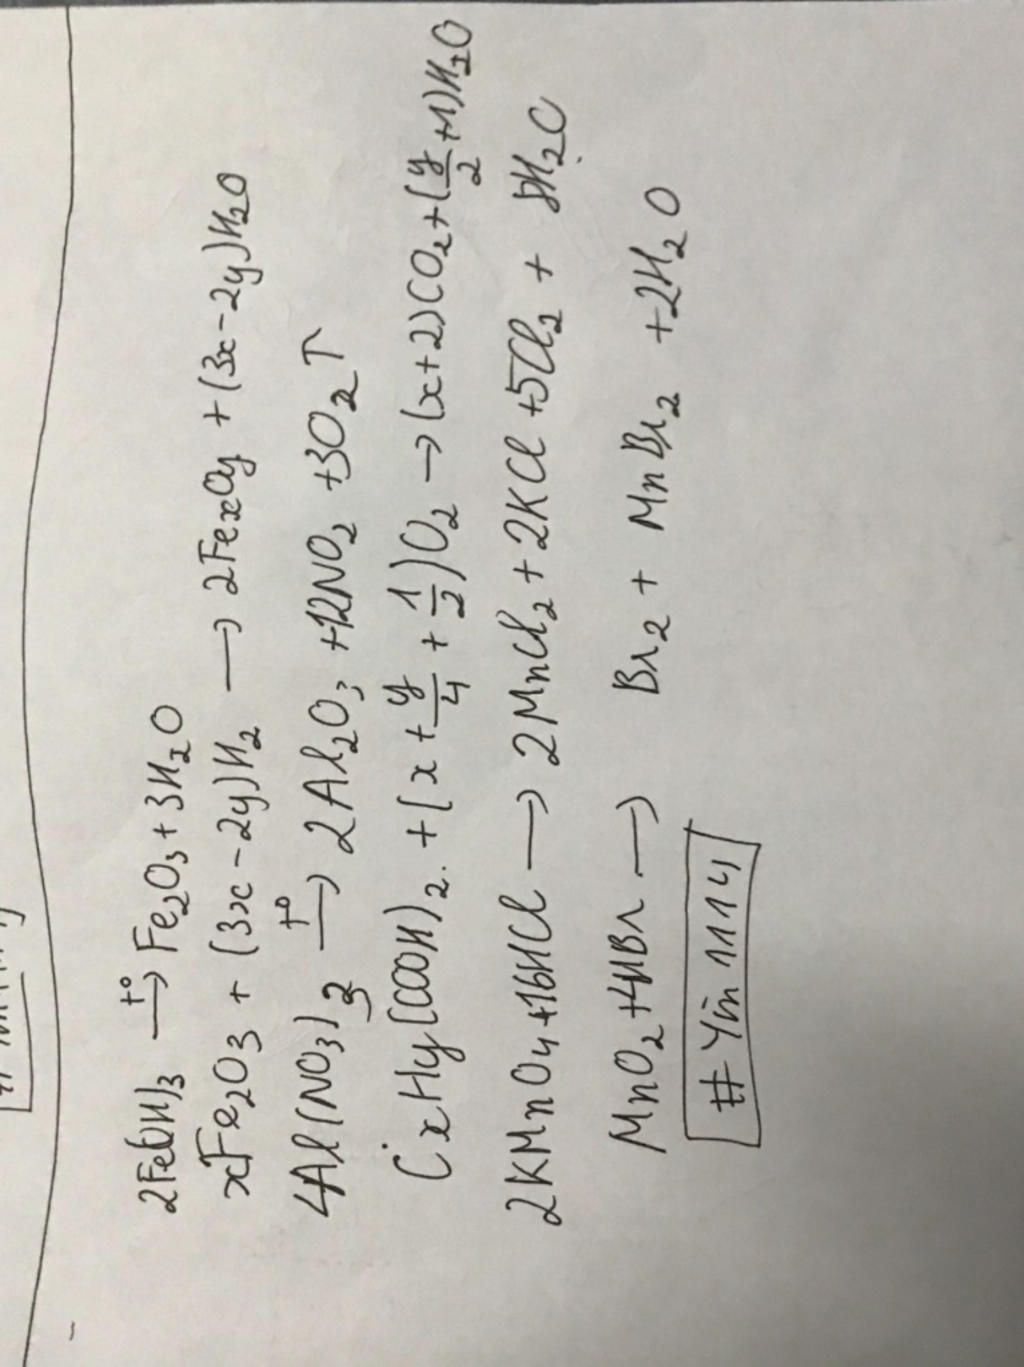 2Fe(OH)3 t°→ Fe2O3 + 3H2O
xFe2O3 + (3x-2y)H2 → 2FexOy + (3x-2y)H2O
4Al(NO3)3 t°→ 2Al2O3 + 12NO2 + 3O2↑
CxHy(COOH)2 + (x + y/4 + 1/2)O2 → (x+2)CO2 + (y/2 + 1)H2O
2KMnO4 + 16HCl → 2MnCl2 + 2KCl + 5Cl2 + 8H2O
MnO2 + 4HBr → Br2 + MnBr2 + 2H2O
# Yin 1114